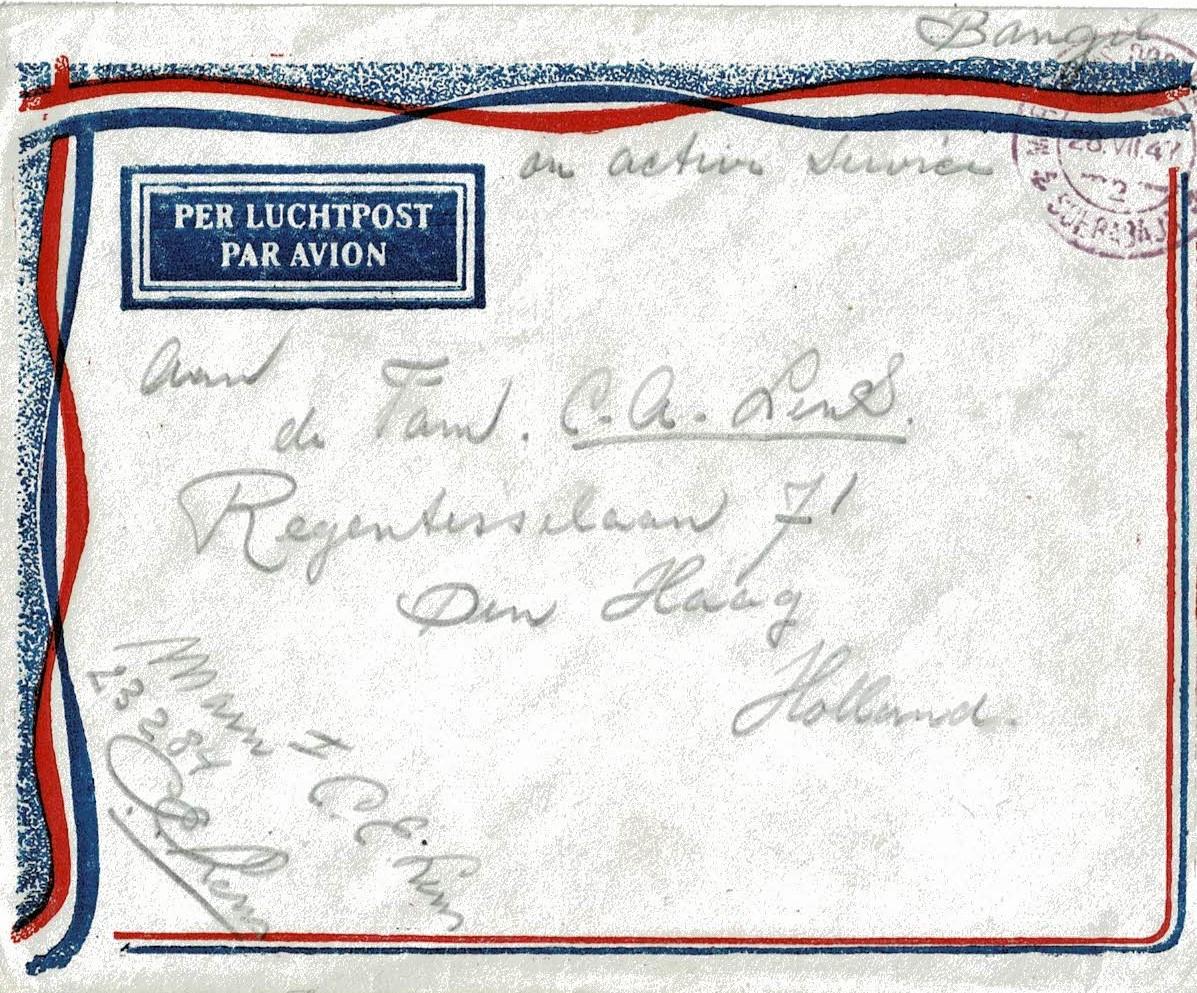 Bangil
on active service
28 VII 47
2
SOERABAJA
PER LUCHTPOST
PAR AVION
Aan
de Fam. C. A. Lens.
Regentesselaan 71
Den Haag
Holland.
Marn I C.E. Lens
23284
C.E. Lens